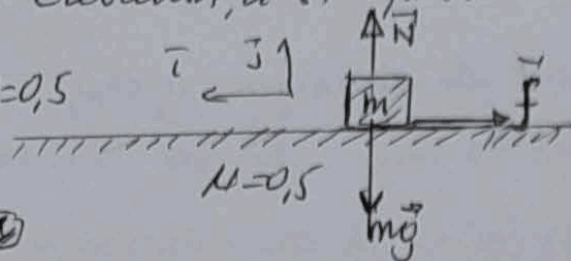 N⃗
=0,5 i⃗ j⃗ m f⃗
μ=0,5
mg⃗